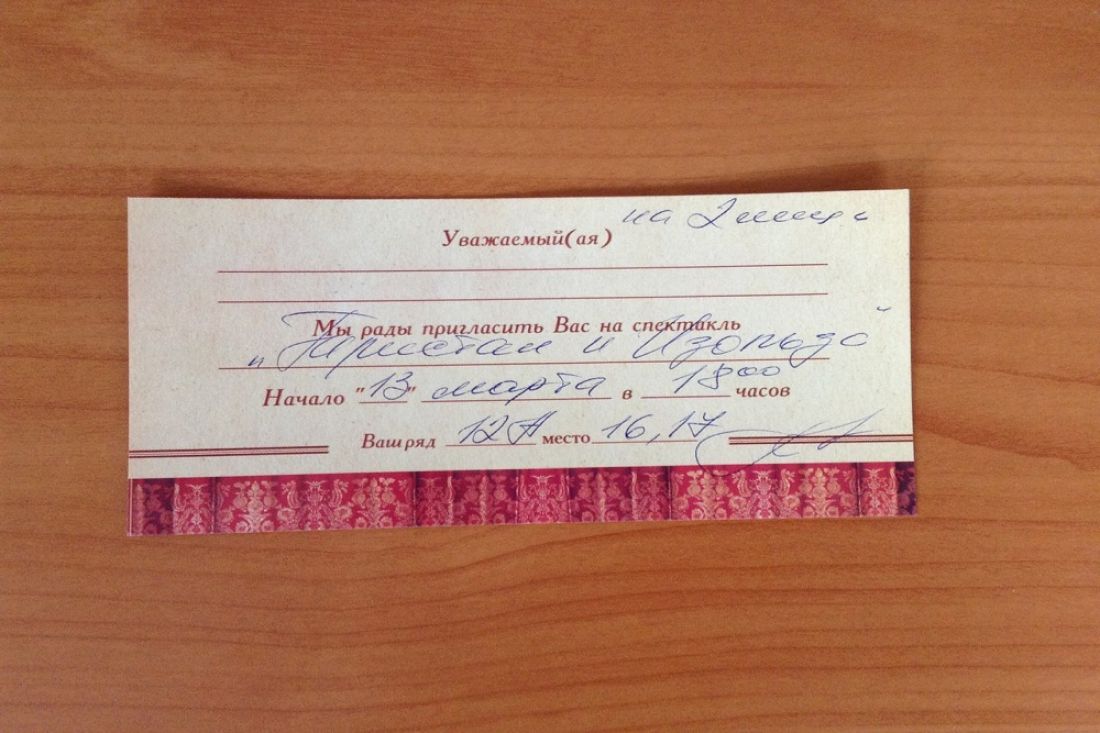 на 2 лица
Уважаемый(ая)
Мы рады пригласить Вас на спектакль
"Тристан и Изольда"
Начало "13" марта в 18 00 часов
Ваш ряд 12А место 16, 17